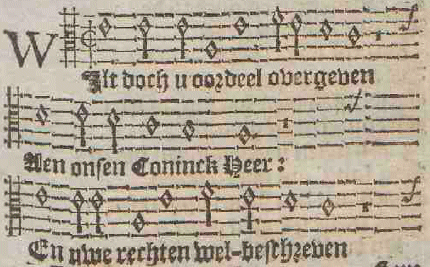 WIlt doch u oordeel overgeven
Aen onsen Coninck Heer:
En uwe rechten wel-beschreven